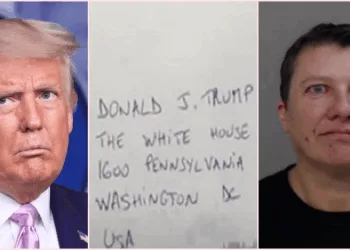 DONALD J. TRUMP
THE WHITE HOUSE
1600 PENNSYLVANIA
WASHINGTON DC
USA